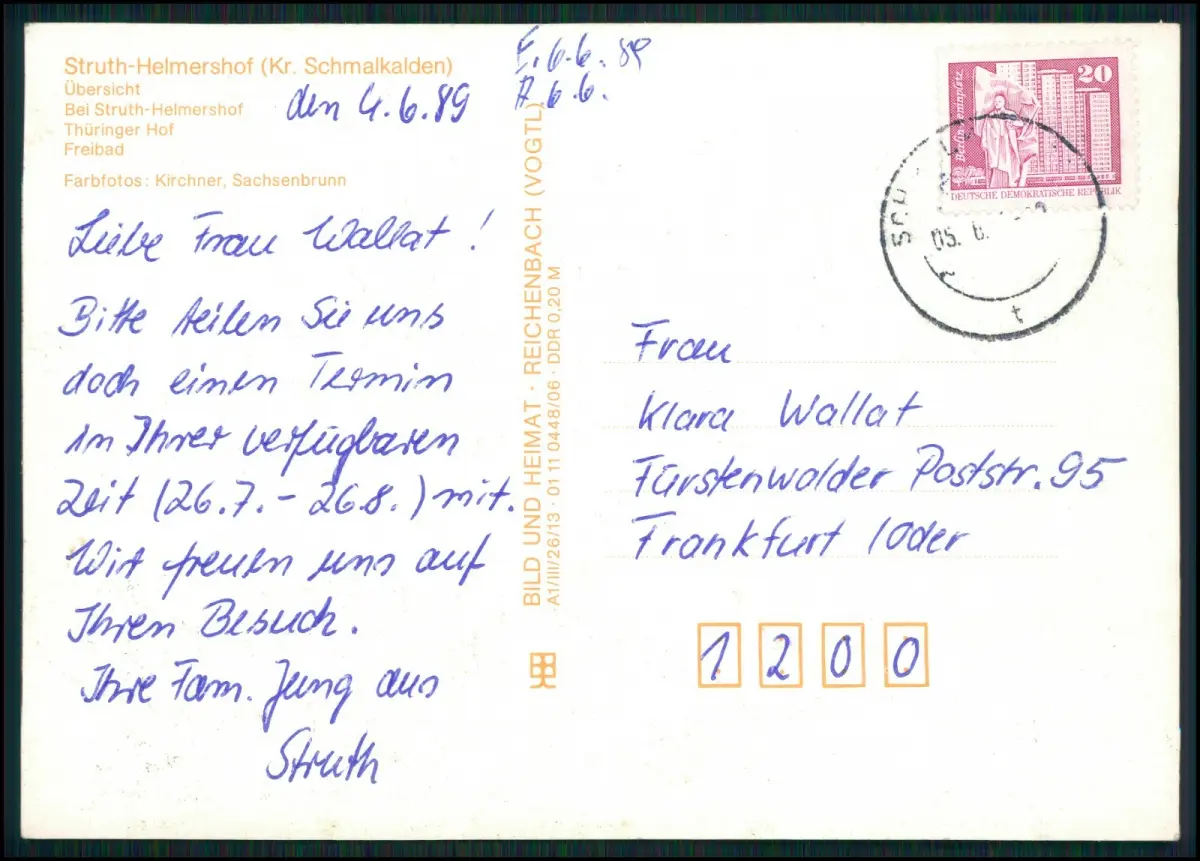 Struth-Helmershof (Kr. Schmalkalden)
Übersicht
Bei Struth-Helmershof
Thüringer Hof
Freibad
Farbfotos: Kirchner, Sachsenbrunn
den 4.6.89
E. 6.6. 89
A 6.6.
Liebe Frau Wallat!
Bitte teilen Sie uns
doch einen Termin
in Ihrer verfügbaren
Zeit (26.7. - 26.8.) mit.
Wir freuen uns auf
Ihren Besuch.
Ihre Fam. Jung aus
Struth
BILD UND HEIMAT · REICHENBACH (VOGTL)
A1/III/26/13 · 01 11 0448/06 · DDR 0,20 M
20
Berlin, Leninplatz
DEUTSCHE DEMOKRATISCHE REPUBLIK
05. 6.
t
Frau
Klara Wallat
Fürstenwalder Poststr. 95
Frankfurt /Oder
1200